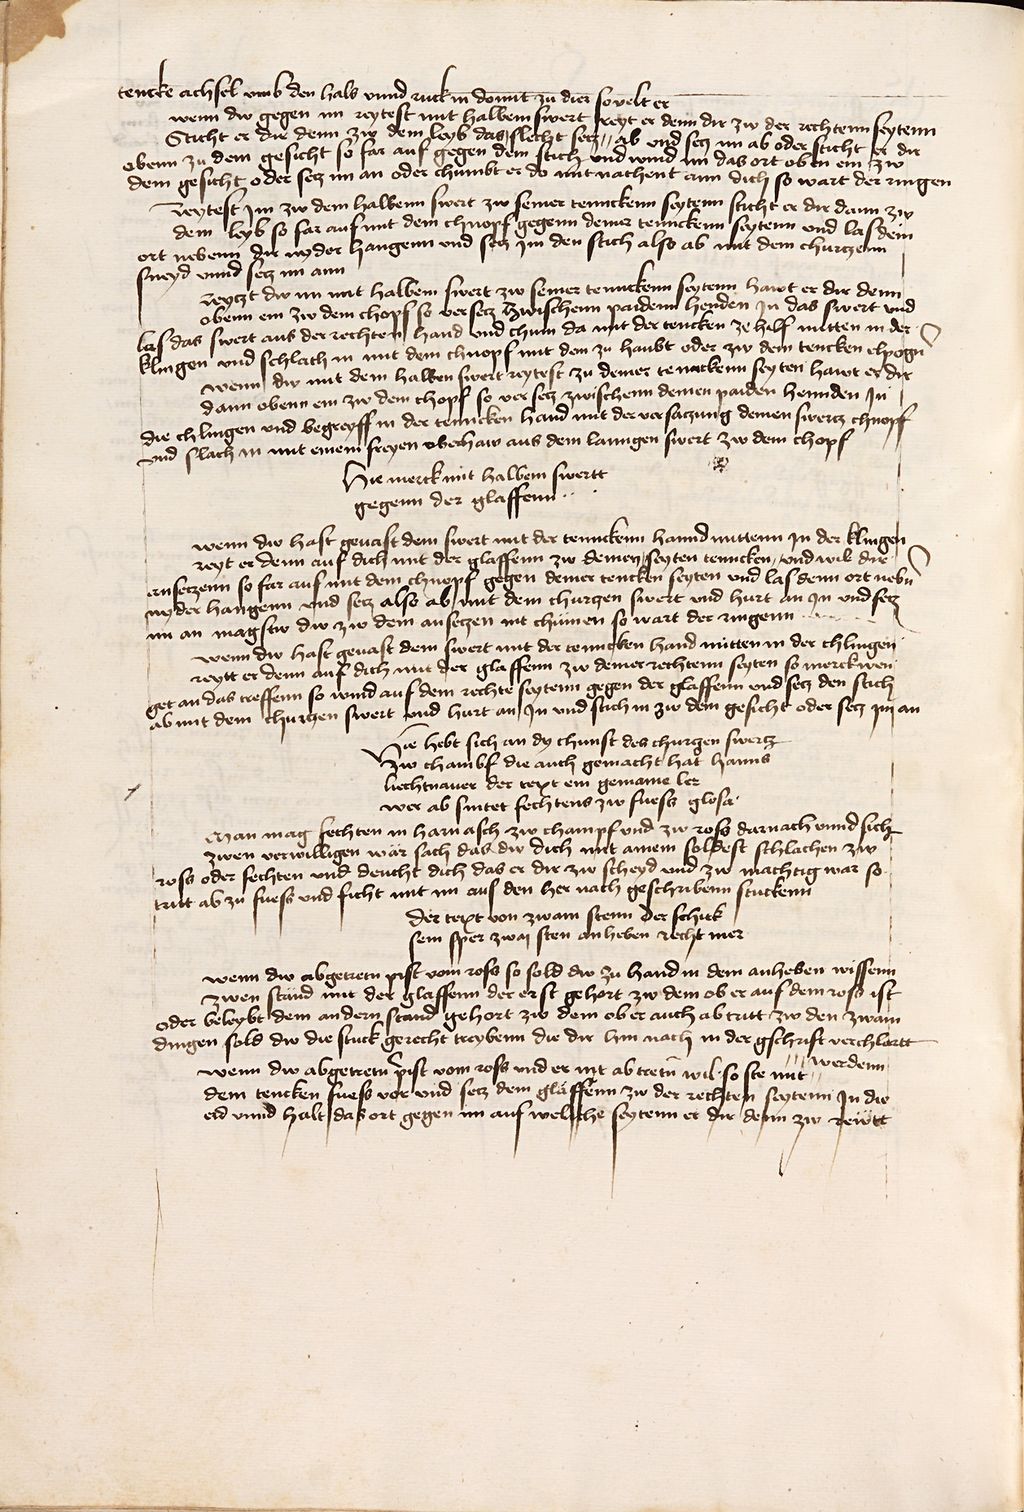 tencke achsel vmb den hals vnnd ruck in domit zu dier so velt er
wenn dw gegen im reytest mit halbem swert reyt er denn dir zw der rechtenn seytenn
Sticht er dir denn zw dem leyb das slecht setz ab vnd setz im ab oder sticht er dir
obenn zu dem gesicht so far auf gegen dem stich vnd wind im das ort oben ein zw
dem gesicht oder setz im an oder chumbt er do mit nachent ann dich so wart der ringen
Reytest Im zw dem halbenn swert zw seiner tennckenn seytenn sticht er dir dann zw
dem leyb so far auf mit dem chnopf gegenn deiner tennckenn seytenn und las dein
ort nebenn dir nyder hangenn vnd setz Im den stich also ab mit dem churtzenn
sneyd vnnd setz im ann
Reytzt dw im mit halbem swert zw seiner tennckenn seytenn hawt er dir denn
obenn ein zw dem chopf so versetz Zwischenn paidenn henden In das swert vnd
las das swert aus der rechten hand vnd chum da mit der tencken ze hilf mitten in der
klingen vnd schlach in mit dem chnopf mit dem zu haubt oder zw dem tencken elpogn
wenn dw mit dem halben swert reytest zu deiner tennckenn seyten hawt er dir
dann obenn ein zw dem chopf so ver setz zwischenn deinen paiden hennden In
die chlingen vnd begreyff in der tenncken hand mit der versatzung deinen swertz chnopf
vnd slach in mit einem freyen vberhaw aus dem lanngen swert zw dem chopf
Hie merck mit halbem swertt
gegenn der glaffenn
wenn dw hast geuast dein swert mit der tennckenn hannd mittenn In der klingen
reyt er denn auf dich mit der glaffenn zw deiner seyten tenncken vnd wil dir
an setzenn so far auf mit dem chnopf gegen deiner tencken seyten vnd las denn ort nebn
nyder hangenn vnd setz also ab mit dem churtzen swert vnd hurt an In vnd setz
im an magstw dw zw dem ansetzen nit chumen so wart der ringenn
wenn dw hast geuast dein swert mit der tenncken hand mitten in der chlingen
reytt er denn auf dich mit der glaffenn zw deiner rechtenn seyten so merck wen
get an das treffenn so wind auf dein rechte seytenn gegen der glaffenn vnd setz den stich
ab mit dem churtzen swert vnd hurt an In vnd stich in zw dem gesicht oder setz im an
Hie hebt sich an dy chunst des churtzen swertz
Zw chambf die auch gemacht hat hanns
liechtnauer der text ein gemaine ler
wer ab sintet fechtens zw fuess glosa
Man mag fechten in harnasch zw champf vnd zw ross darnach vnnd sich
zwen verwilligen wär sach das dw dich mit ainem soldest schlachen zw
ross oder fechten vnd deucht dich das er dir zw scheyd vnd zw mächtig war so
tritt ab zu fuess vnd ficht mit im aus den her nach geschribenn stuckenn
Der text von zwain stenn der schick
sein sper zwai sten anheben recht wer
wenn dw abgetretn pist vom ross so sold dw zu hand in dem anheben wissenn
zwen ständ mit der glaffenn der erst gehört zw dem ob er auf dem ross ist
oder beleybt dem andern stand gehort zw dem ob er auch ab tritt zw den zwain
dingen sold dw die stuck gerecht treybenn die dir hin nach in der gschrift verchlartt
werdenn
wenn dw abgetretn pist vom ross vnd er nit ab tretn wil so ste mit
dem tencken fuess vor vnd setz dein gläffenn zw der rechten seytenn In die
erd vnnd halt das ort gegen im auf weliche seytenn er dir denn zw reitt